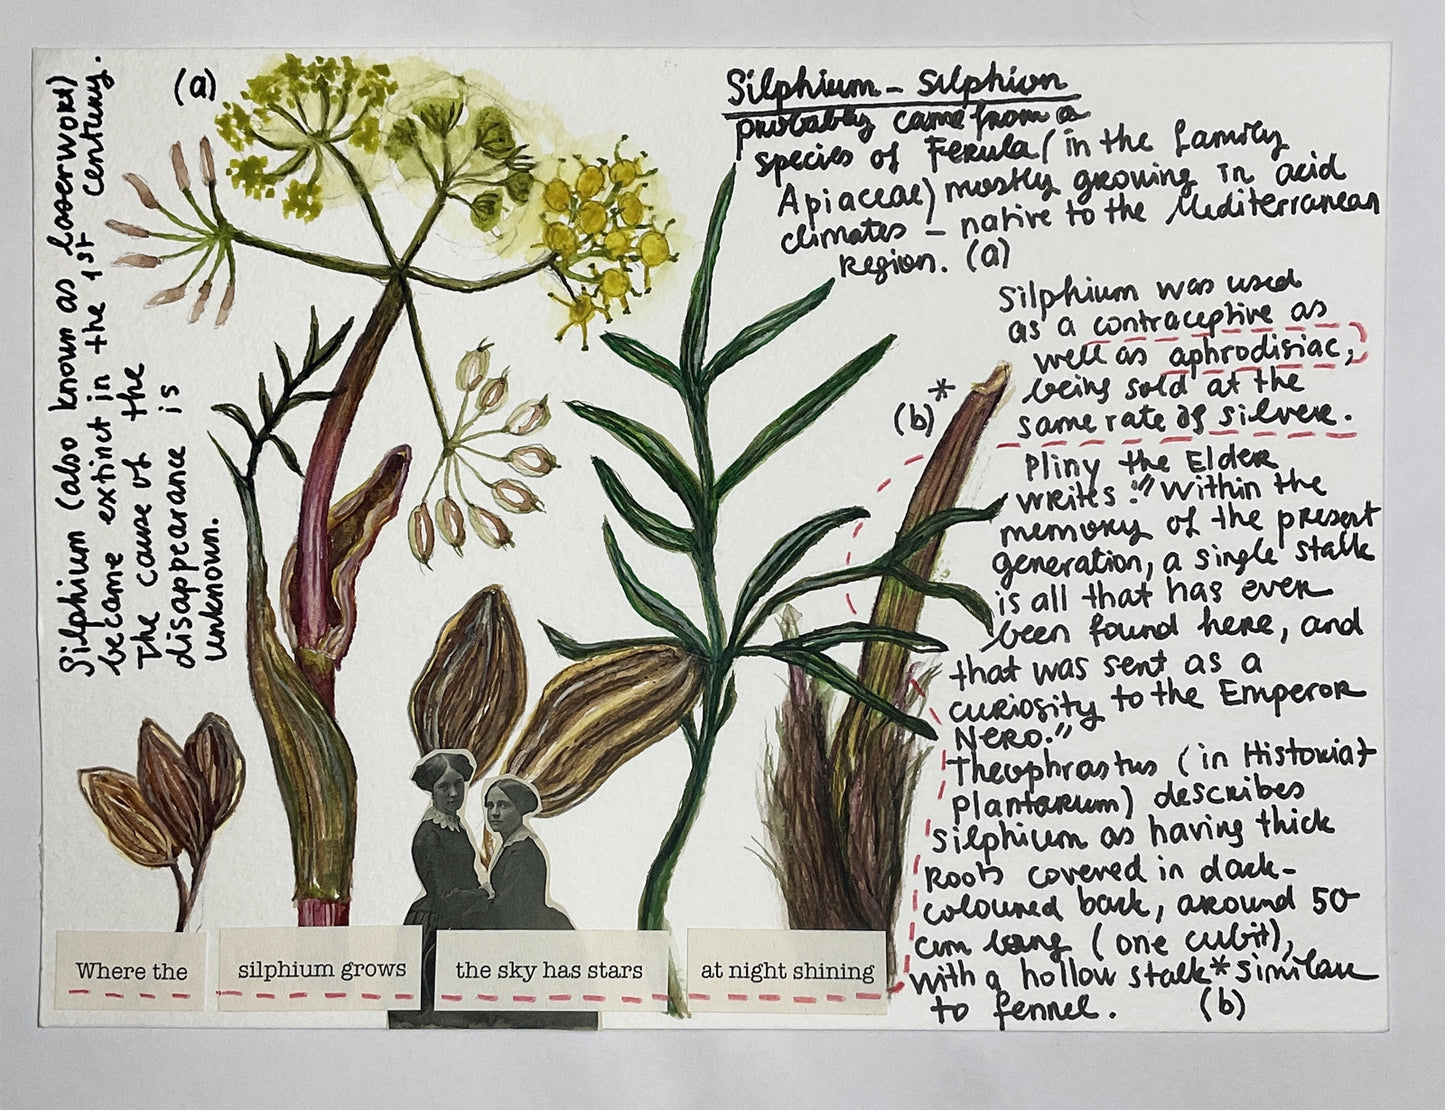 Silphium (also known as laserwort)
became extinct in the 1st century.
The cause of the
disappearance is
unknown.
(a)
Silphium - Silphion
probably came from a
species of Ferula (in the family
Apiaceae) mostly growing in acid
climates - native to the Mediterranean
region. (a)
Silphium was used
as a contraceptive as
well as aphrodisiac,
being sold at the
same rate of silver.
(b)*
Pliny the Elder
writes: "Within the
memory of the present
generation, a single stalk
is all that has ever
been found here, and
that was sent as a
curiosity to the Emperor
Nero."
Theophrastus (in Historiat
plantarum) describes
silphium as having thick
roots covered in dark-
coloured bark, around 50
cm long (one cubit),
with a hollow stalk* similar
to fennel. (b)
Where the silphium grows the sky has stars at night shining